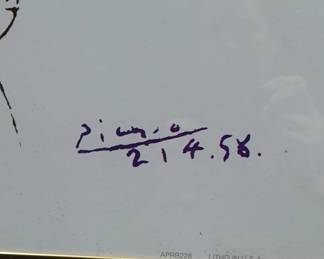 Picasso
21 4.56.
APRB228 LITHO IN U.S.A.